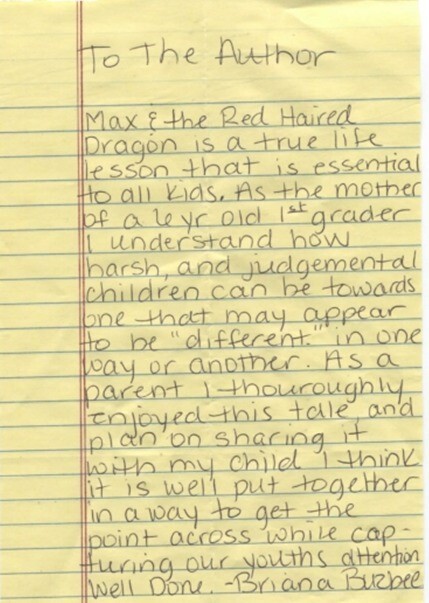 To The Author
Max & the Red Haired
Dragon is a true life
lesson that is essential
to all kids. As the mother
of a 6 yr old 1st grader
I understand how
harsh, and judgemental
children can be towards
one that may appear
to be "different" in one
way or another. As a
parent I thouroughly
enjoyed this tale, and
plan on sharing it
with my child I think
it is well put together
in a way to get the
point across while cap-
turing our youths attention
Well Done. -Briana Buzbee